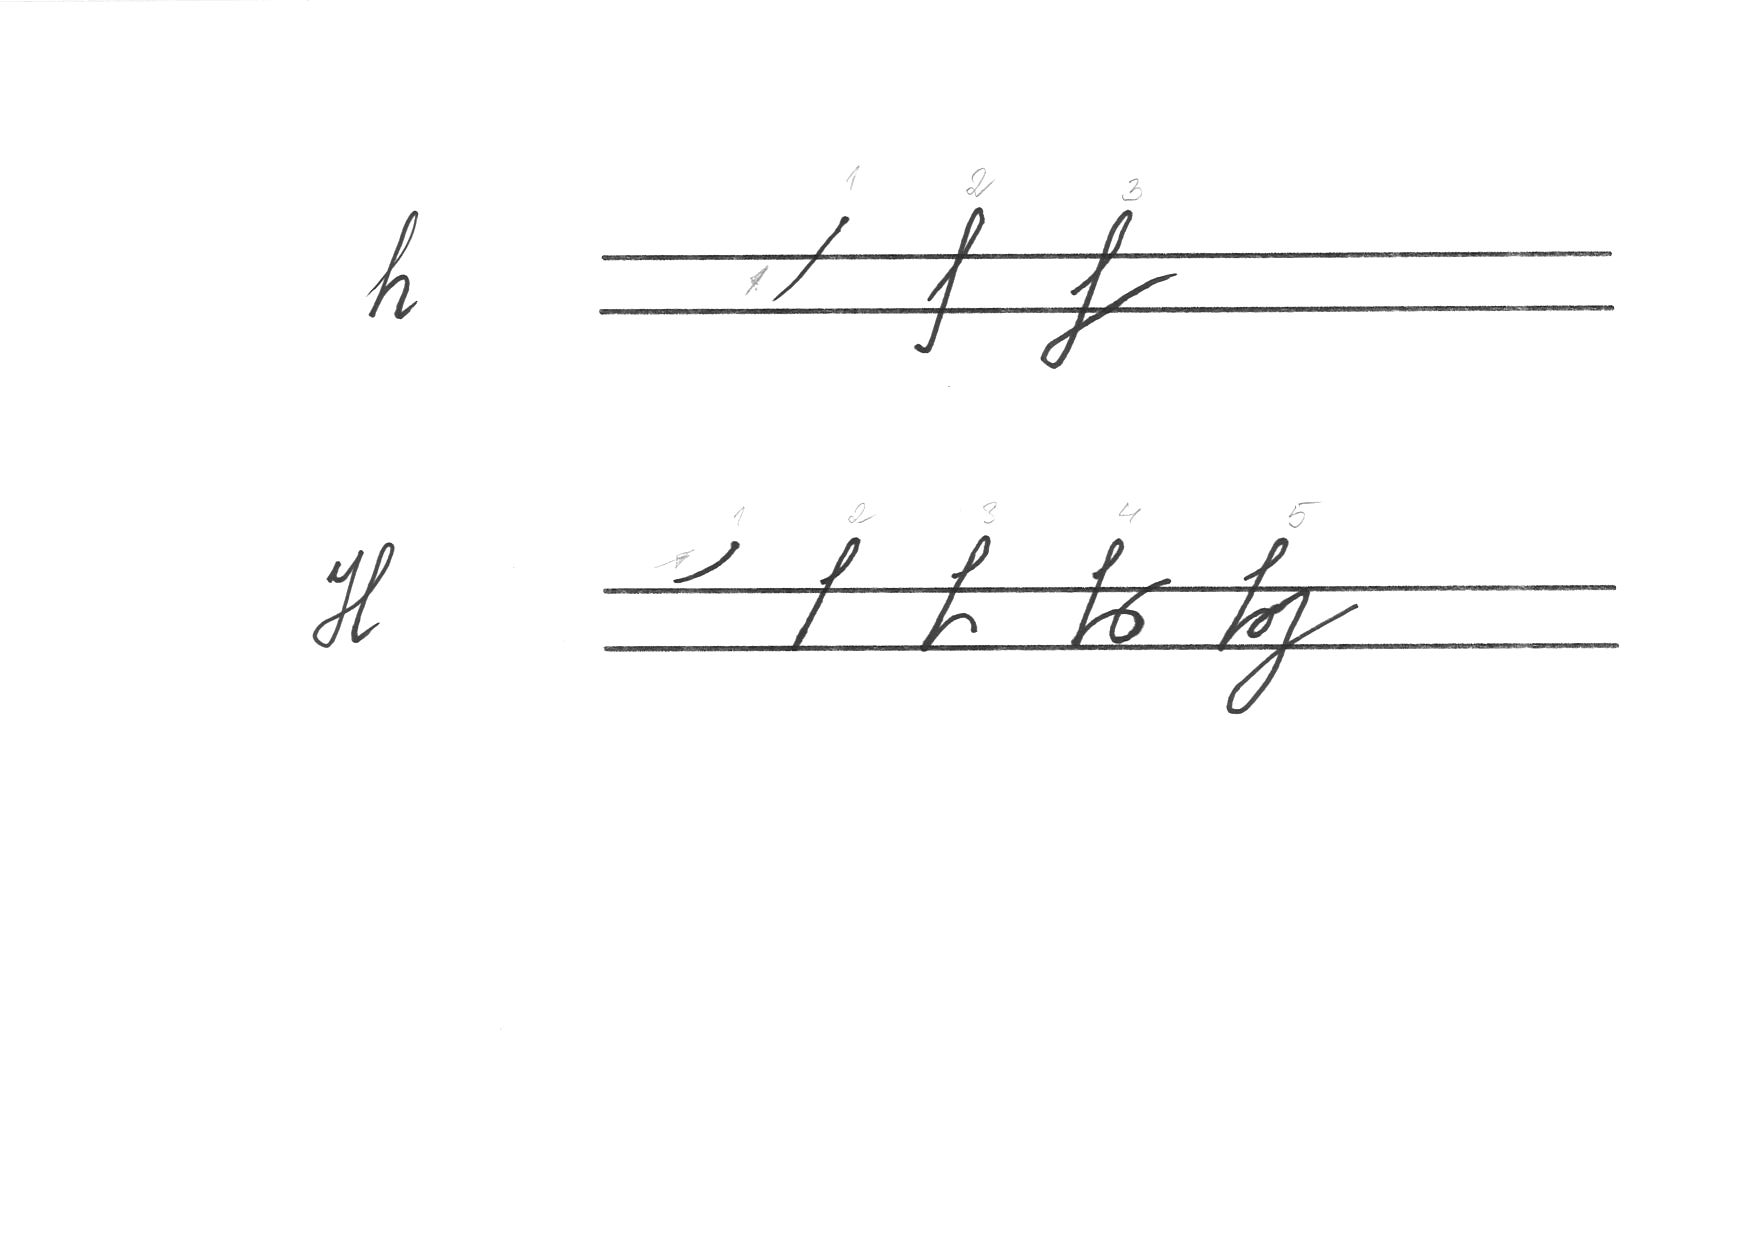 1 2 3
h
1 2 3 4 5
H